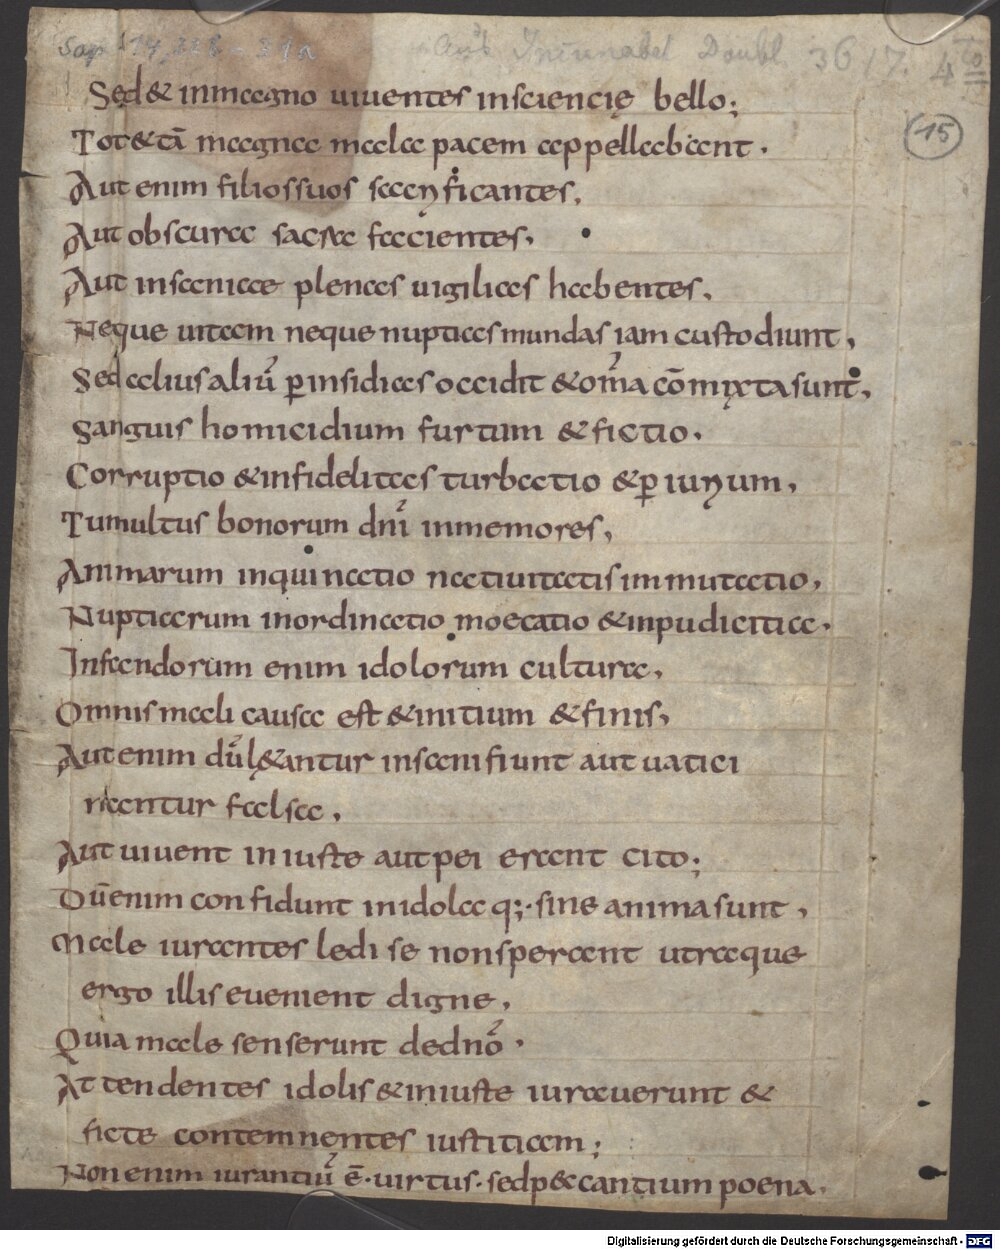 Sap 14, 22b - 31a
Aus Incunabel Doubl. 36 17. 4
15
Sed & inmagno uiuentes insciencię bello;
Tot&tā magna mala pacem appellabant .
Aut enim filiossuos sacrificantes,
Aut obscura sacra facientes,
Aut insaniae plenas uigilias habentes,
Neque uitam neque nuptias mundas iam custodiunt,
Sed alius aliū ꝑ insidias occidit &om̄a cōmixta sunt,
Sanguis homicidium furtum & fictio.
Corruptio &infidelitas turbatio &ꝑ iurium,
Tumultus bonorum dn̄i inmemores,
Animarum inquinatio natiuitatis immutatio,
Nuptiarum inordinatio moecatio &inpudicitia.
Infandorum enim idolorum cultura,
Omnis mali causa est &initium & finis,
Aut enim dū l&antur insani fiunt aut uatici
nantur falsa,
Aut uiuent in iuste aut pei erant cito;
Dūenim confidunt inidola q;· sine anima sunt,
Male iurantes ledi se nonsperant utraque
ergo illis euenient digne,
Quia male senserunt dedn̄o.
Attendentes idolis &iniuste iurauerunt &
ficte contemnentes iustitiam;
Non enim iurantiū ē· uirtus· sed peccantium poena.
Digitalisierung gefördert durch die Deutsche Forschungsgemeinschaft - DFG